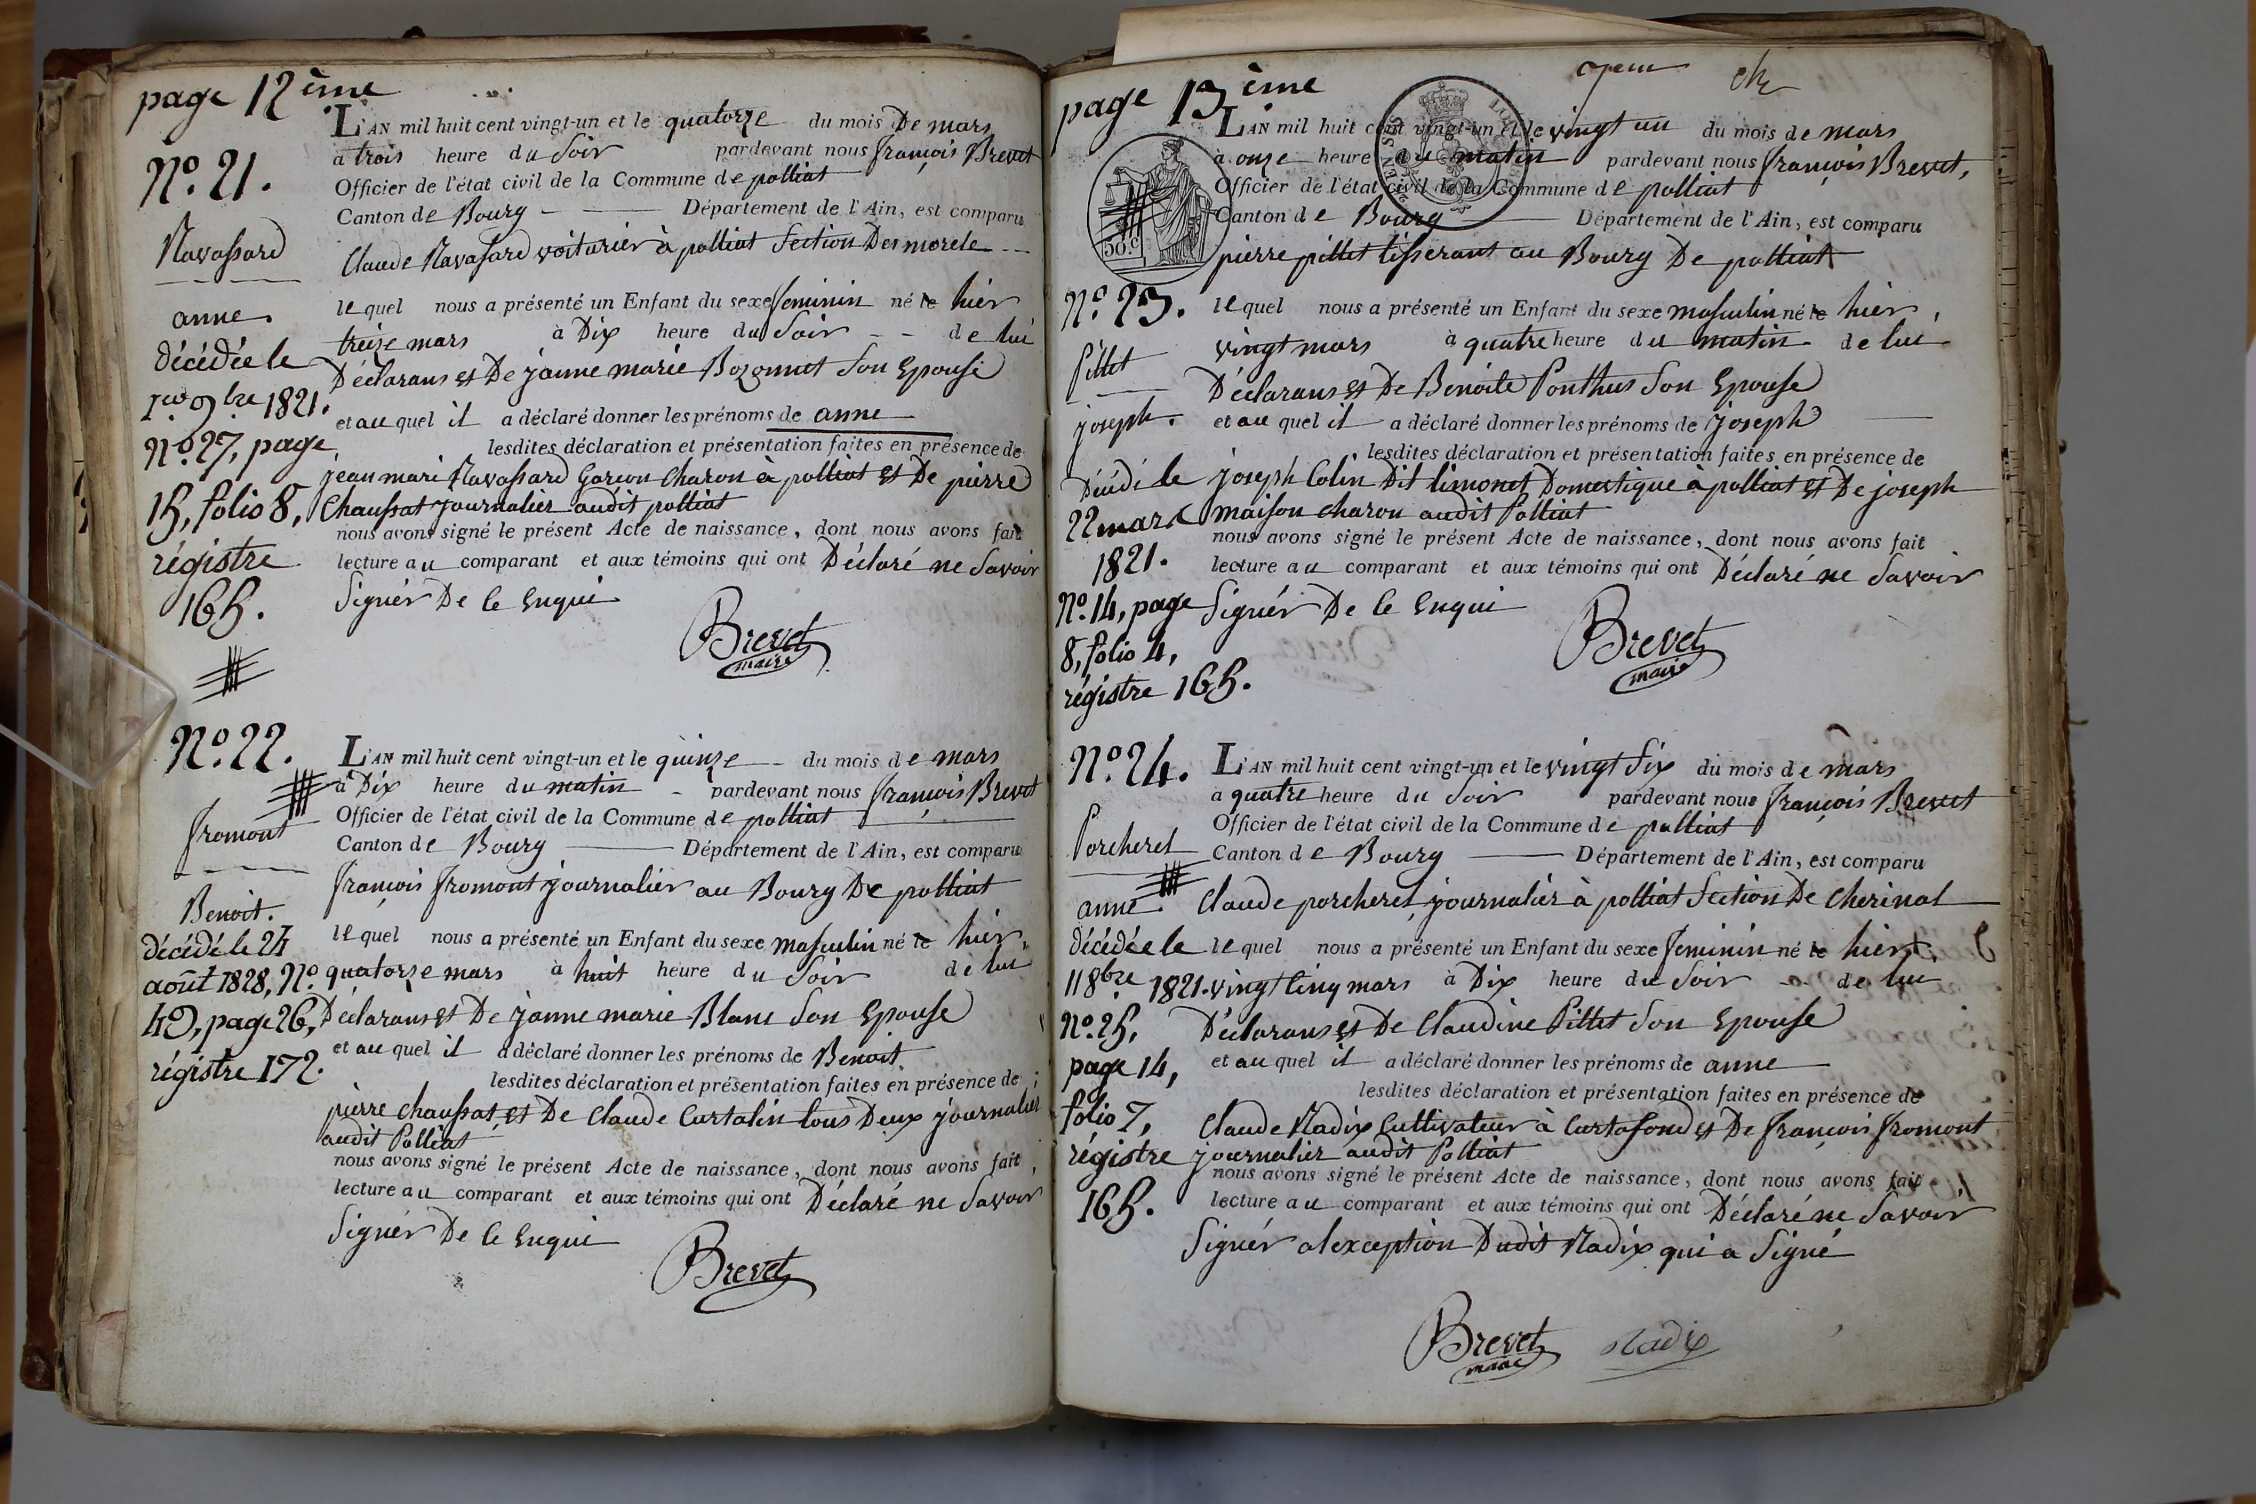 page 12ème
N.º 21.
Navassard
anne.
décédée le
1er 9bre 1821.
Nº. 27, page
15, folio 8,
régistre
165.
L'AN mil huit cent vingt-un et le quatorze du mois De mars
à trois heure du Soir pardevant nous françois Brevet
Officier de l'état civil de la Commune de polliat
Canton de Bourg Département de l'Ain, est comparu
Claude Navasard voiturier à polliat Section Des morele
le quel nous a présenté un Enfant du sexe feminin né le hier
treize mars à Dix heure du Soir de lui
Déclarans et De janne marie Bozonnet Son Epouse
et au quel il a déclaré donner les prénoms de anne
lesdites déclaration et présentation faites en présence de
jean mari Navassard Garson Charon à polliat et De pierre
Chaussat journalier audit polliat
nous avons signé le présent Acte de naissance, dont nous avons fait
lecture au comparant et aux témoins qui ont Déclaré ne Savoir
Signér De Ce Enquis
Brevet
maire
N.º 22.
fromont
Benoit.
décédé le 24
août 1828, Nº.
49, page 26,
régistre 172.
L'AN mil huit cent vingt-un et le quinze du mois de mars
à Dix heure du matin pardevant nous françois Brevet
Officier de l'état civil de la Commune de polliat
Canton de Bourg Département de l'Ain, est comparu
françois fromont journalier au Bourg De polliat
le quel nous a présenté un Enfant du sexe masculin né le hier,
quatorze mars à huit heure du Soir de lui
Déclarans et De janne marie Blanc Son Epouse
et au quel il a déclaré donner les prénoms de Benoit
lesdites déclaration et présentation faites en présence de
pierre chaussat et De Claude Curtalin tous Deux journalier
audit Polliat
nous avons signé le présent Acte de naissance, dont nous avons fait
lecture au comparant et aux témoins qui ont Déclaré ne Savoir
Signér De Ce Enquis
Brevet
page 13ème
50 c.
N.º 23.
Pillet
joseph.
Décédé le
22 mars
1821.
Nº. 14, page
8, folio 4,
régistre 165.
L'AN mil huit cent vingt-un et le vingt un du mois de mars
à onze heure du matin pardevant nous françois Brevet,
Officier de l'état civil de la Commune de polliat
Canton de Bourg Département de l'Ain, est comparu
pierre pillet tisserant au Bourg De polliat
le quel nous a présenté un Enfant du sexe masculin né le hier,
vingt mars à quatre heure du matin de lui
Déclarans et De Benoite Ponthus Son Epouse
et au quel il a déclaré donner les prénoms de joseph
lesdites déclaration et présentation faites en présence de
joseph Colin Dit limonet Domestique à polliat et De joseph
maison charon audit Polliat
nous avons signé le présent Acte de naissance, dont nous avons fait
lecture au comparant et aux témoins qui ont Déclaré ne Savoir
Signér De Ce Enquis
Brevet
maire
N.º 24.
Porcheret
anne.
décédée le
11 8bre 1821.
Nº. 25,
page 14,
folio 7,
régistre
165.
L'AN mil huit cent vingt-un et le vingt Six du mois de mars
à quatre heure du Soir pardevant nous françois Brevet
Officier de l'état civil de la Commune de polliat
Canton de Bourg Département de l'Ain, est comparu
Claude porcheret, journalier à polliat Section De cherinal
le quel nous a présenté un Enfant du sexe feminin né le hier,
vingt cinq mars à Dix heure du Soir de lui
Déclarans et De Claudine Pillet Son Epouse
et au quel il a déclaré donner les prénoms de anne
lesdites déclaration et présentation faites en présence de
Claude Nadix Cultivateur à Curtafond et De françois fromont
journalier audit Polliat
nous avons signé le présent Acte de naissance, dont nous avons fait
lecture au comparant et aux témoins qui ont Déclaré ne Savoir
Signér alexception Dudit Nadix qui a Signé
Brevet
maire
Nadix